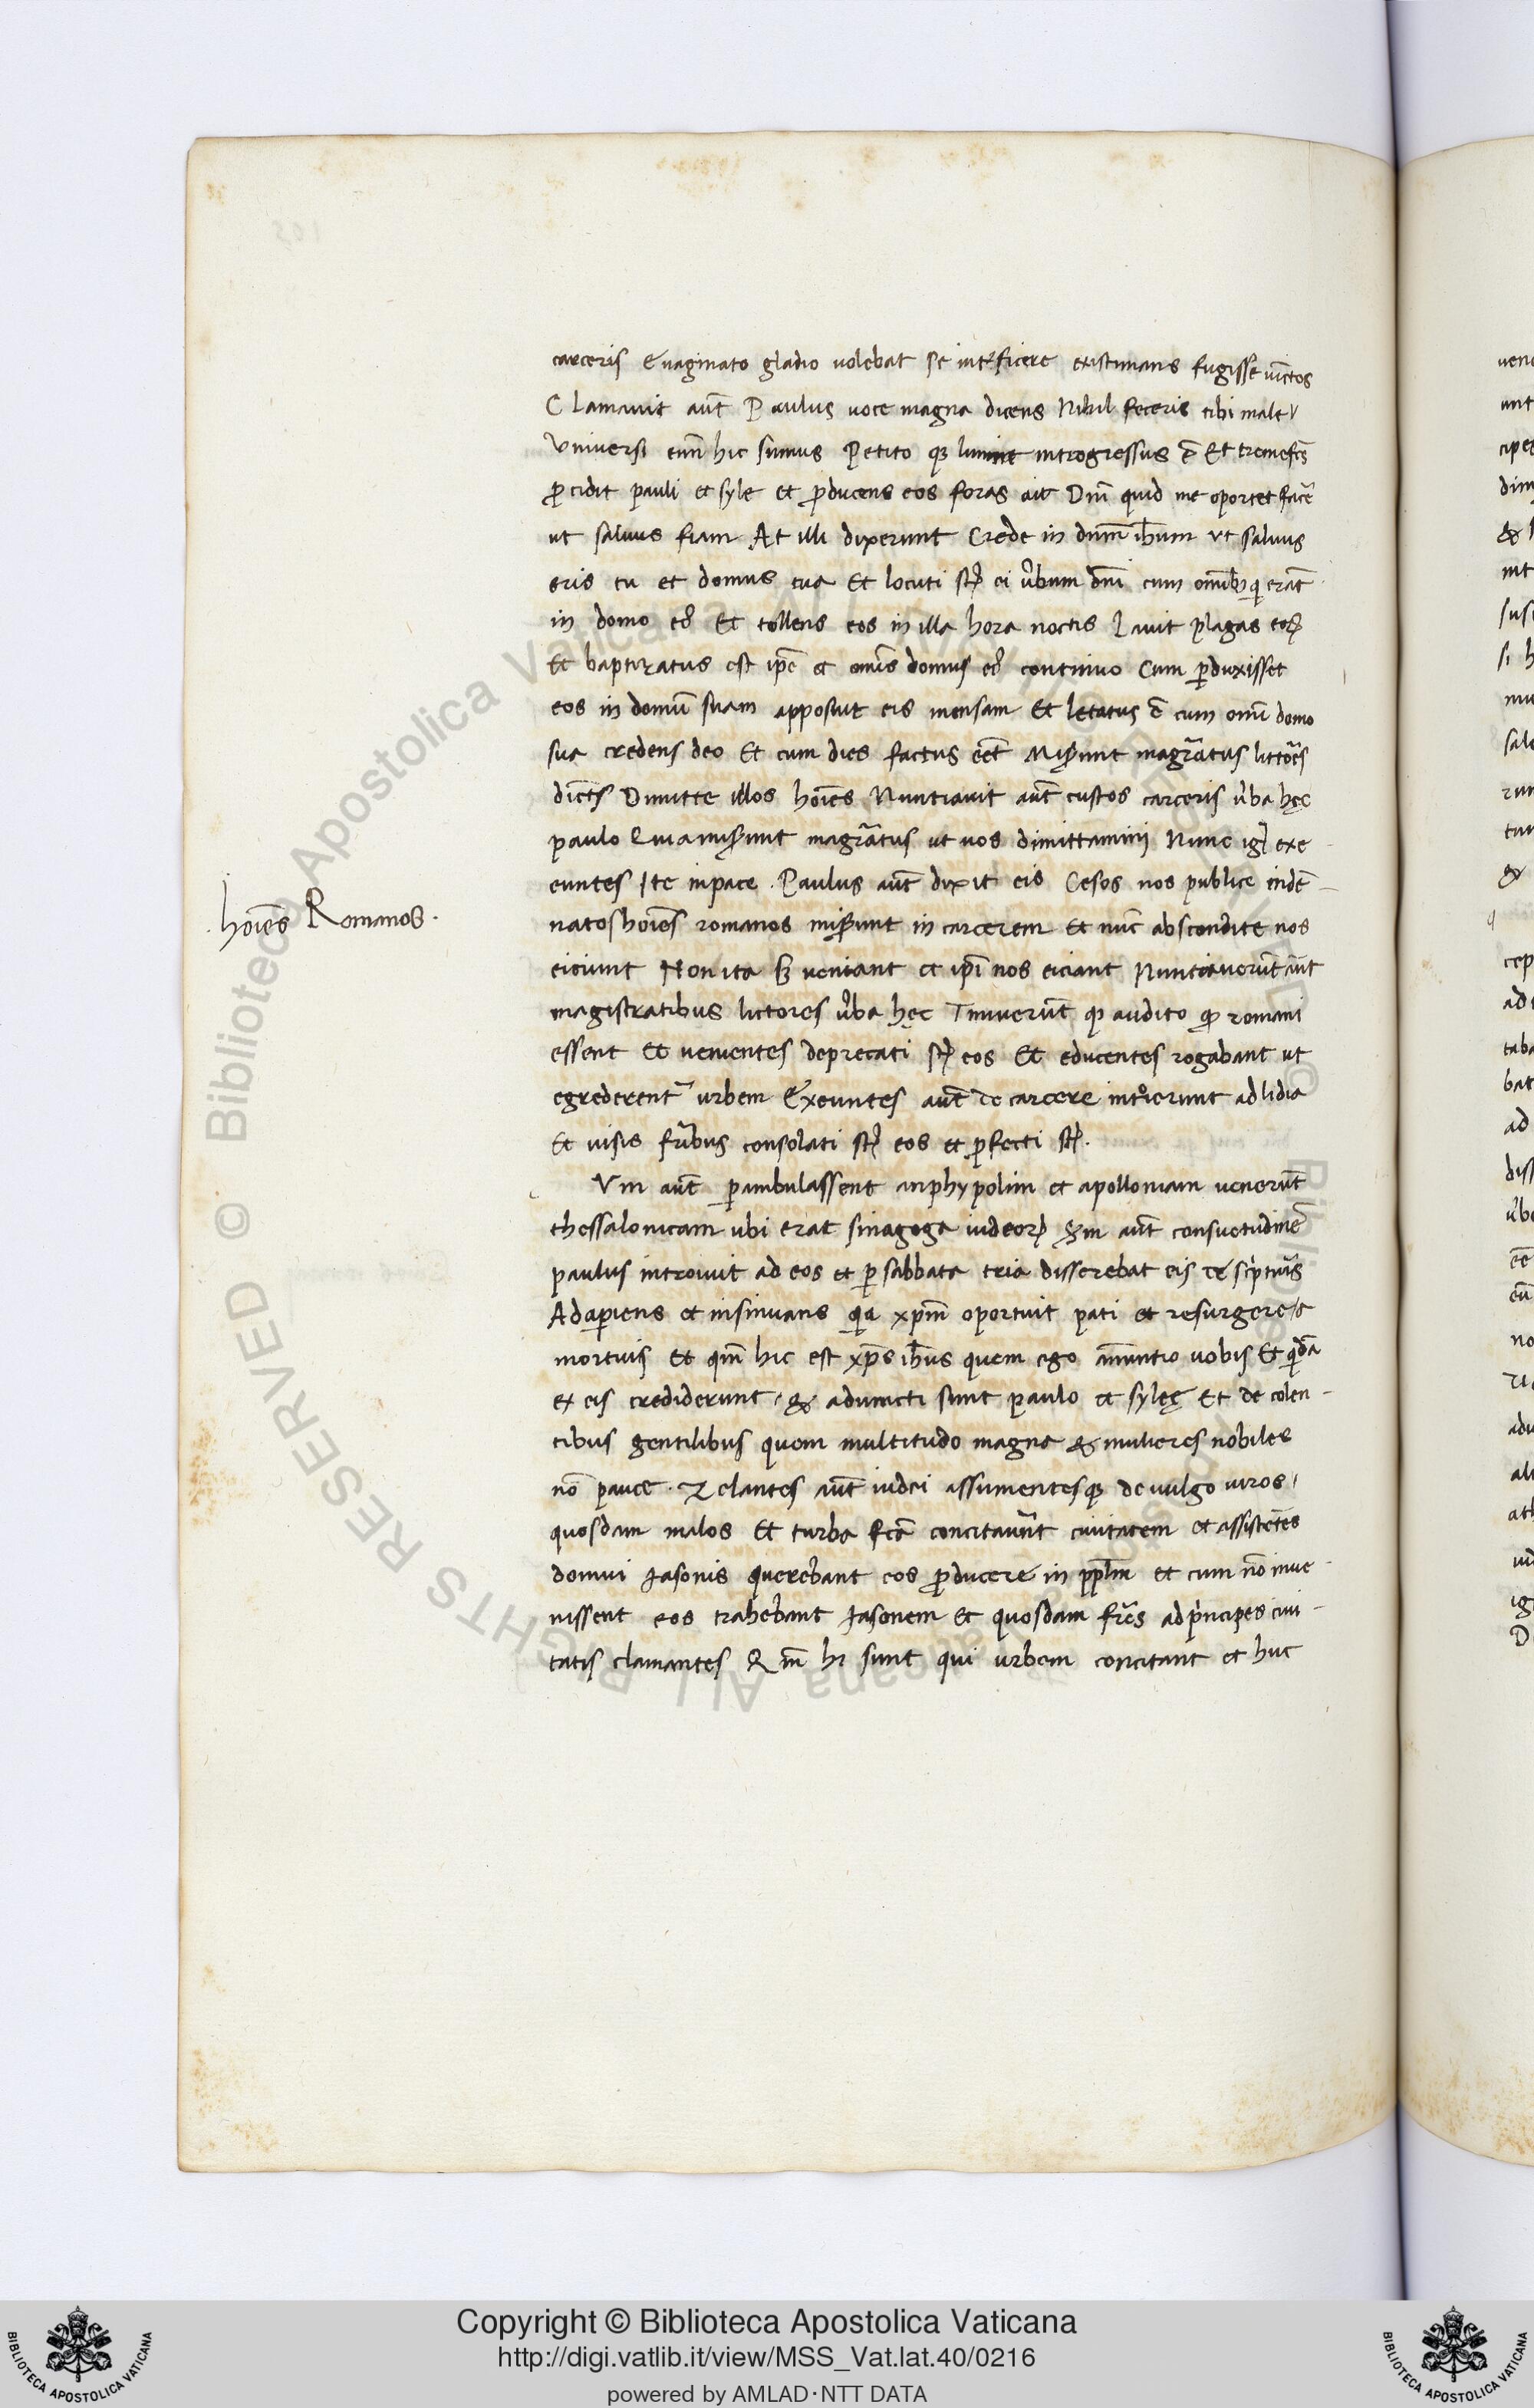 carceris Euaginato gladio uolebat se interficere existimans fugisse uictos
Clamauit aut̄ Paulus uoce magna dicens Nihil feceris tibi male/
Vniuersi enī hic sumus Petito qꝫ lumine introgressus ē Et tremefc̄s
ꝓcidit pauli et syle et ꝓducens eos foras ait Dn̄i quid me oportet facē
ut saluus fiam At illi dixerunt Crede in dnm̄ ih̄um ut saluus
eris tu et domus tua Et locuti st̄ ei u̓bum dn̄i cum omībꝫ qui erāt
in domo eiꝰ Et tollens eos in illa hora noctis lauit plagas eoꝝ
Et baptizatus est ip̄e et omīs domus eiꝰ continuo Cum ꝑduxisset
eos in domū suam apposuit eis mensam Et letatus ē cum omī domo
sua credens deo Et cum dies factus eēt Miserunt magr̄atus littor̄es
dicēt̄s Dimitte illos hoīes Nuntiauit aut̄ custos carceris u̓ba hęc
paulo Quia miserunt magr̄atus ut uos dimittamini Nunc igꝛ̄ exe
euntes Ite inpace . Paulus aut̄ dixit eis Cesos nos publice indē-
natos hoīes romanos miserunt in carcerem Et nūc abscondite nos
eiciunt Non ita sꝫ ueniant et ip̄i nos eiciant Nuntiauerūt aūt
magistratibus lictores u̓ba hęc Timuerūt qꝫ audito ꝙ romani
essent Et uenientes deprecati st̄ eos Et educentes rogabant ut
egrederent᷑ urbem Exeuntes aut̄ de carcere introierunt ad lidia
Et uisis fr̄ibus consolati st̄ eos et ꝓfecti st̄.
. hoīes Romanos .
c Vm aut̄ ꝑambulassent anphypolim et apolloniam uenerūt
thessalonicam ubi erat sinagoga iudeoꝝ Scd̄m aut̄ consuetudinē
paulus introiuit ad eos et ꝑ sabbata tria disserebat eis de scripturis
Adaꝑiens et insinuans quia xp̄m oportuit pati et resurgere/a
mortuis Et qm̄ hic est xp̄s ih̄us quem ego anūntio uobis Et quidā
ex eis crediderunt / & adiuncti sunt paulo et sylę Et de colen-
tibus gentilibus quem multitudo magna & mulieres nobiles
nō pauce . Zelantes aut̄ iudei assumentesqꝫ de uulgo uiros/
quosdam malos Et turba fcā concitauer̄t ciuitatem et assistētes
domui Jasonis querebant eos ꝓducere in pp̄lm et cum nō inue-
nissent eos trahebant Jasonem Et quosdam fr̄es ad principes ciui-
tatis clamantes Qm̄ hi sunt qui urbem concitant et huc
Copyright © Biblioteca Apostolica Vaticana
http://digi.vatlib.it/view/MSS_Vat.lat.40/0216
powered by AMLAD·NTT DATA